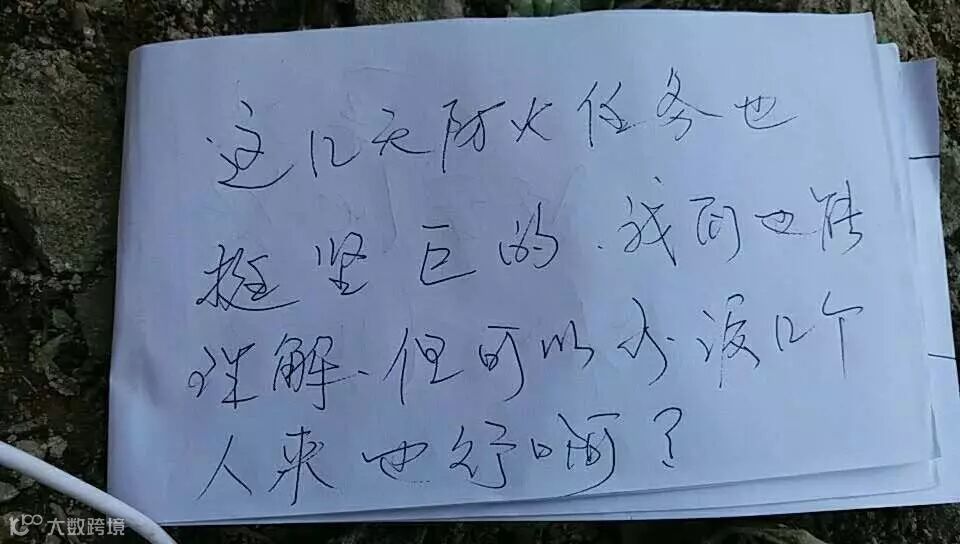 这几天防火任务也
挺坚巨的、我们也能
理解、但可以少派几个
人来也行啊？
大数跨境